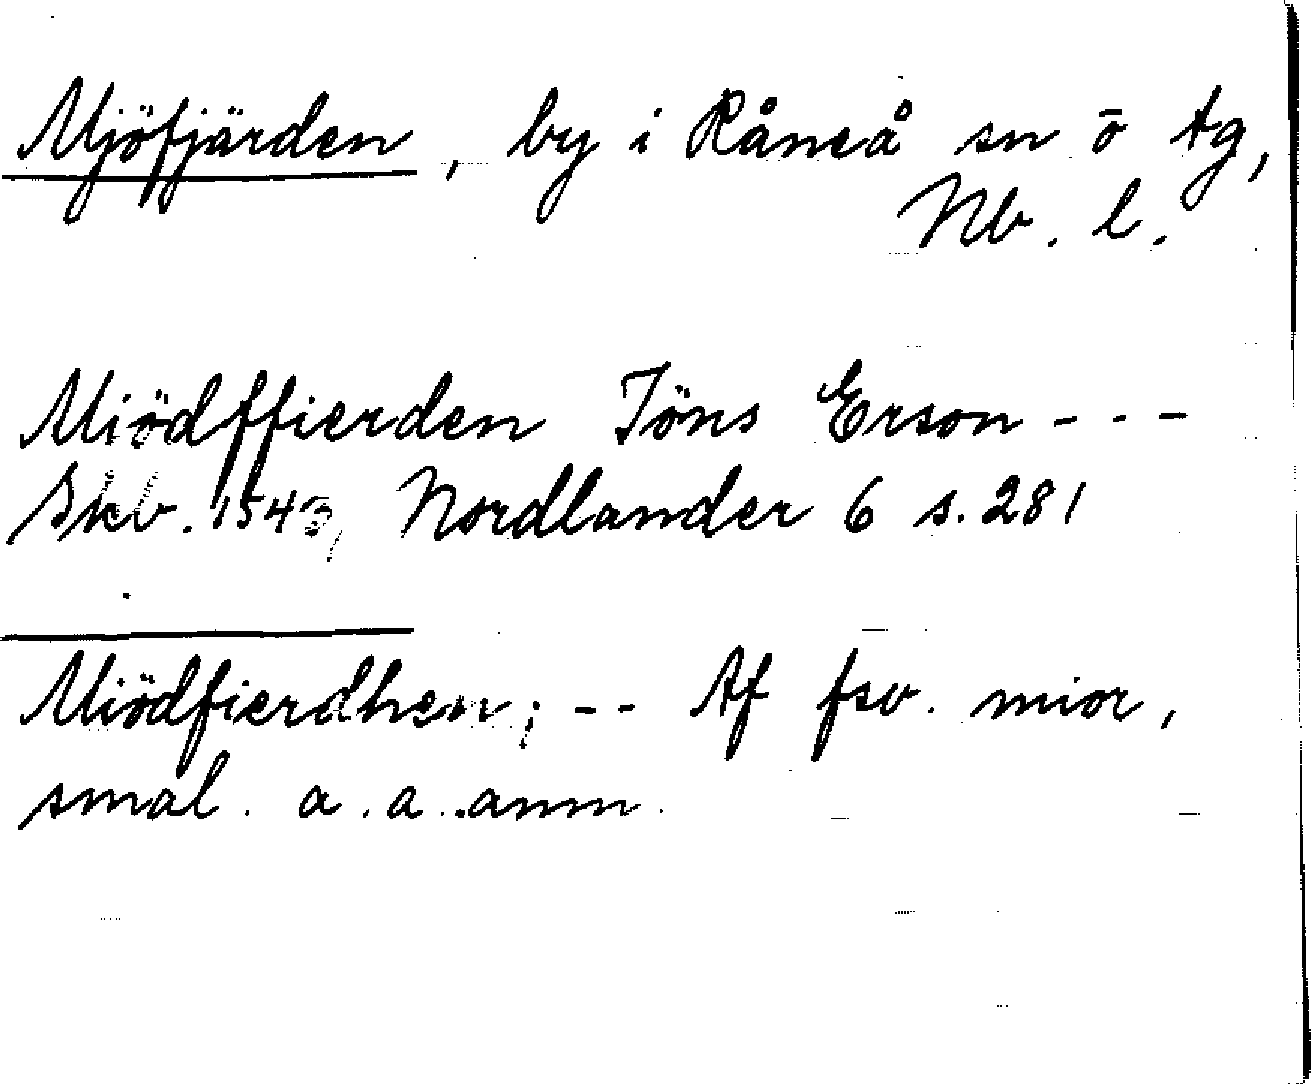 Mjöfjärden, by i Råneå sn ö tg,
Nb. l.
Miödffierden Jöns Erson - - -
Skb. 1543, Nordlander 6 s. 281
Miödfierdhen; -- Af fsv. mior,
smal. a. a. anm.